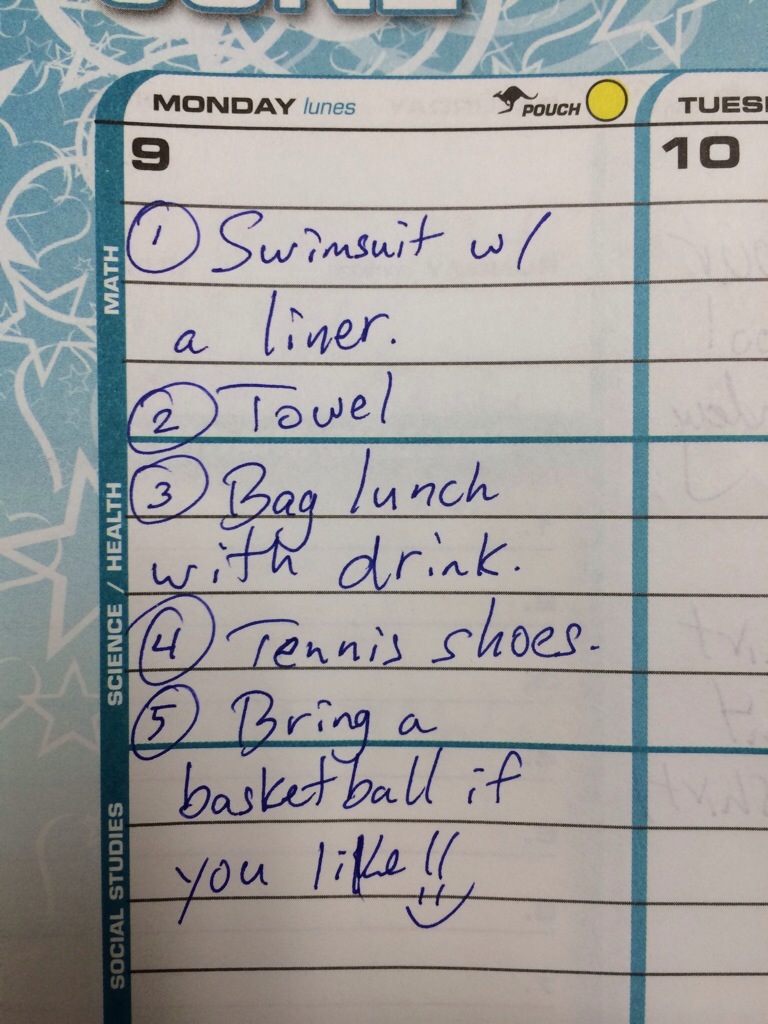 JUNE
MONDAY lunes POUCH
TUES
9
10
① Swimsuit w/
a liner.
② Towel
③ Bag lunch
with drink.
④ Tennis shoes.
⑤ Bring a
basketball if
you like!!
MATH
SCIENCE / HEALTH
SOCIAL STUDIES